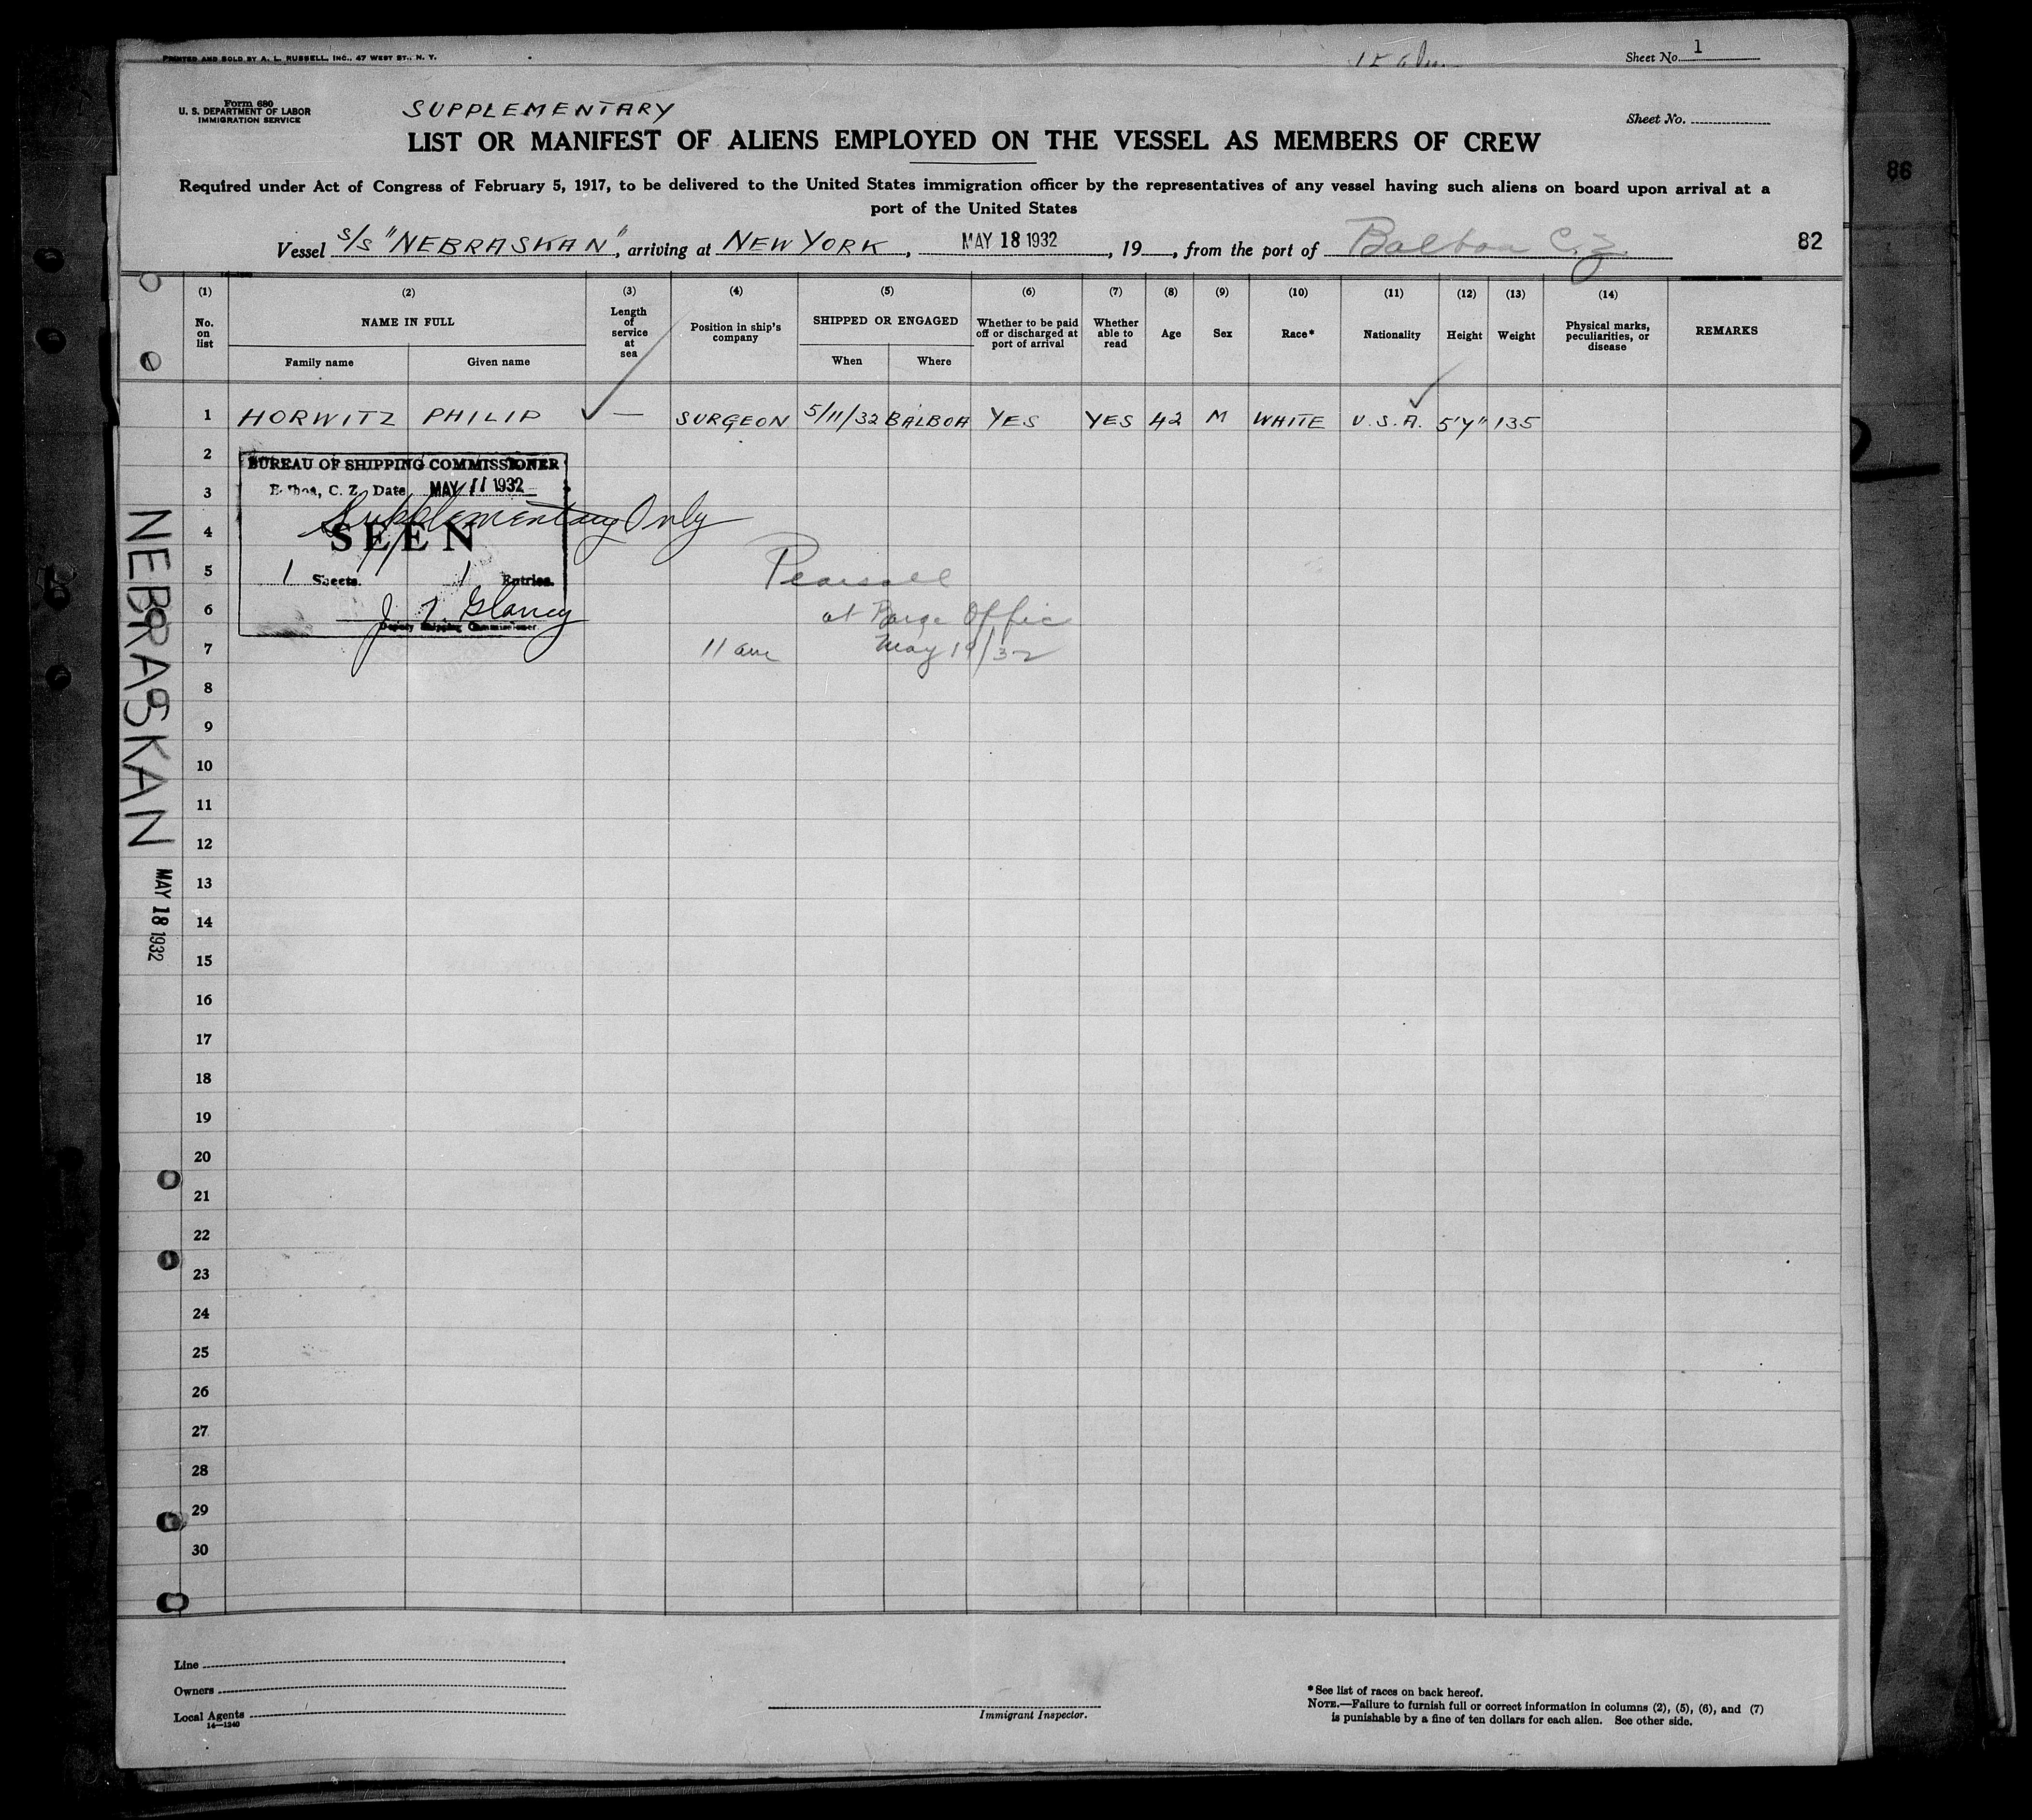 PRINTED AND SOLD BY A. L. RUSSELL, INC., 47 WEST ST., N. Y.
Sheet No. 1
Form 680
U. S. DEPARTMENT OF LABOR
IMMIGRATION SERVICE
SUPPLEMENTARY
Sheet No.
LIST OR MANIFEST OF ALIENS EMPLOYED ON THE VESSEL AS MEMBERS OF CREW
Required under Act of Congress of February 5, 1917, to be delivered to the United States immigration officer by the representatives of any vessel having such aliens on board upon arrival at a
port of the United States
Vessel S/S "NEBRASKAN", arriving at NEW YORK, MAY 18 1932, 19, from the port of Balboa C.Z.
82
86
(1) (2) (3) (4) (5) (6) (7) (8) (9) (10) (11) (12) (13) (14)
No. on list
NAME IN FULL
Family name
Given name
Length of service at sea
Position in ship's company
SHIPPED OR ENGAGED
When
Where
Whether to be paid off or discharged at port of arrival
Whether able to read
Age
Sex
Race*
Nationality
Height
Weight
Physical marks, peculiarities, or disease
REMARKS
1 HORWITZ PHILIP — SURGEON 5/11/32 BALBOA YES YES 42 M WHITE U.S.A. 5'4" 135
2
3
4
5
6
7
8
9
10
11
12
13
14
15
16
17
18
19
20
21
22
23
24
25
26
27
28
29
30
BUREAU OF SHIPPING COMMISSIONER
Balboa, C. Z. Date MAY 11 1932
Supplementary Only
SEEN
1 Sheets. 1 Entries.
Deputy Shipping Commissioner.
Pearsall
at Barge Office
11 am May 19/32
NEBRASKAN
MAY 18 1932
Line
Owners
Local Agents
14—1240
Immigrant Inspector.
*See list of races on back hereof.
NOTE.—Failure to furnish full or correct information in columns (2), (5), (6), and (7)
is punishable by a fine of ten dollars for each alien. See other side.